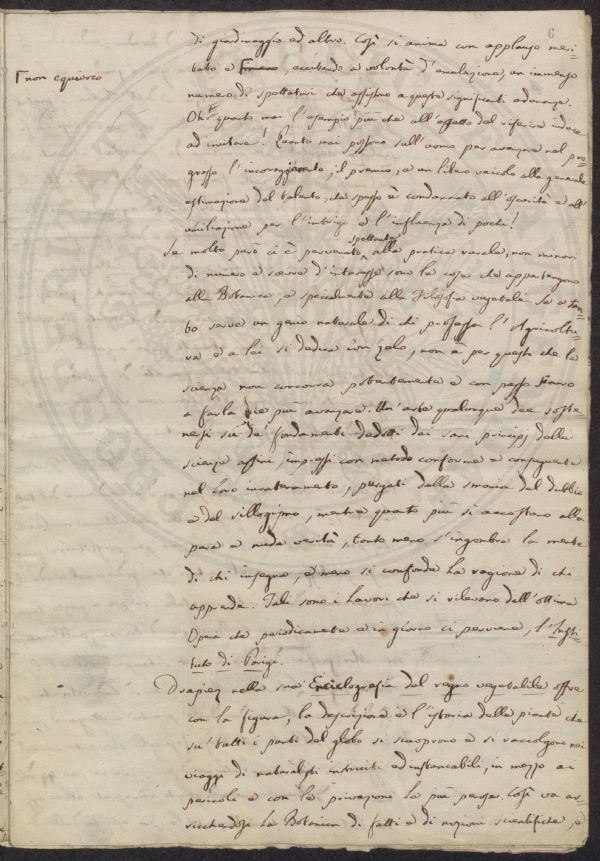 6
di giardinaggio ed altro. Così si anima con applauso meri-
tato e, eccitando a volontà d'emulazione, un immenso
⌈non equivoco
numero di spettatori che assistono a queste significanti adunanze.
Oh! quanto mai l'esempio più che all'affetto del riferire induce
ad imitare! Quanto mai possono sull'uomo per avanzare nel pro-
gresso l'incoraggiamento, il premio, e un libero veicolo alla generale
estimazione del talento, che spesso è condannato all'oscurità e all'
umiliazione per l'intrigo e l'influenza di pochi!
Se molto però ci è pervenuto spettante alla pratica rurale, non minori
di numero e scevre d'interesse sono le cose che appartengono
alla Botanica, e specialmente alla Filosofia vegetabile. Se a tan-
to serve un genio naturale di chi professa l'Agricoltu-
ra e a lei si dedica con zelo, non è per questo che la
scienza non concorra potentemente e con passo fermo
a farla vie più avanzare. Un'arte qualunque dee soste-
nersi su de' fondamenti dedotti dai sani principj delle
scienze affini, impressi con metodo conforme e conseguente
nel loro incatenamento, purgati dalla smania del dubbio
e del sillogismo, mentre quanto più si accostano alla
pura e nuda verità, tanto meno s'ingombra la mente
di chi insegna, e meno si confonde la ragione di chi
apprende. Tali sono i lavori che si rilevano dall'ottima
Opera che periodicamente e in giorno ci perviene, l'Insti-
tuto di Parigi.
Drapiez nella sua Enciclografia del regno vegetabile offre
con la figura, la descrizione e l'istoria delle piante che
su' tutti i punti del globo si scuoprono e si raccolgono nei
viaggi di naturalisti istruiti ed instancabili, in mezzo ai
pericoli e con le privazioni le più penose. Così va ar-
ricchendosi la Botanica di fatti e di nozioni scientifiche, e